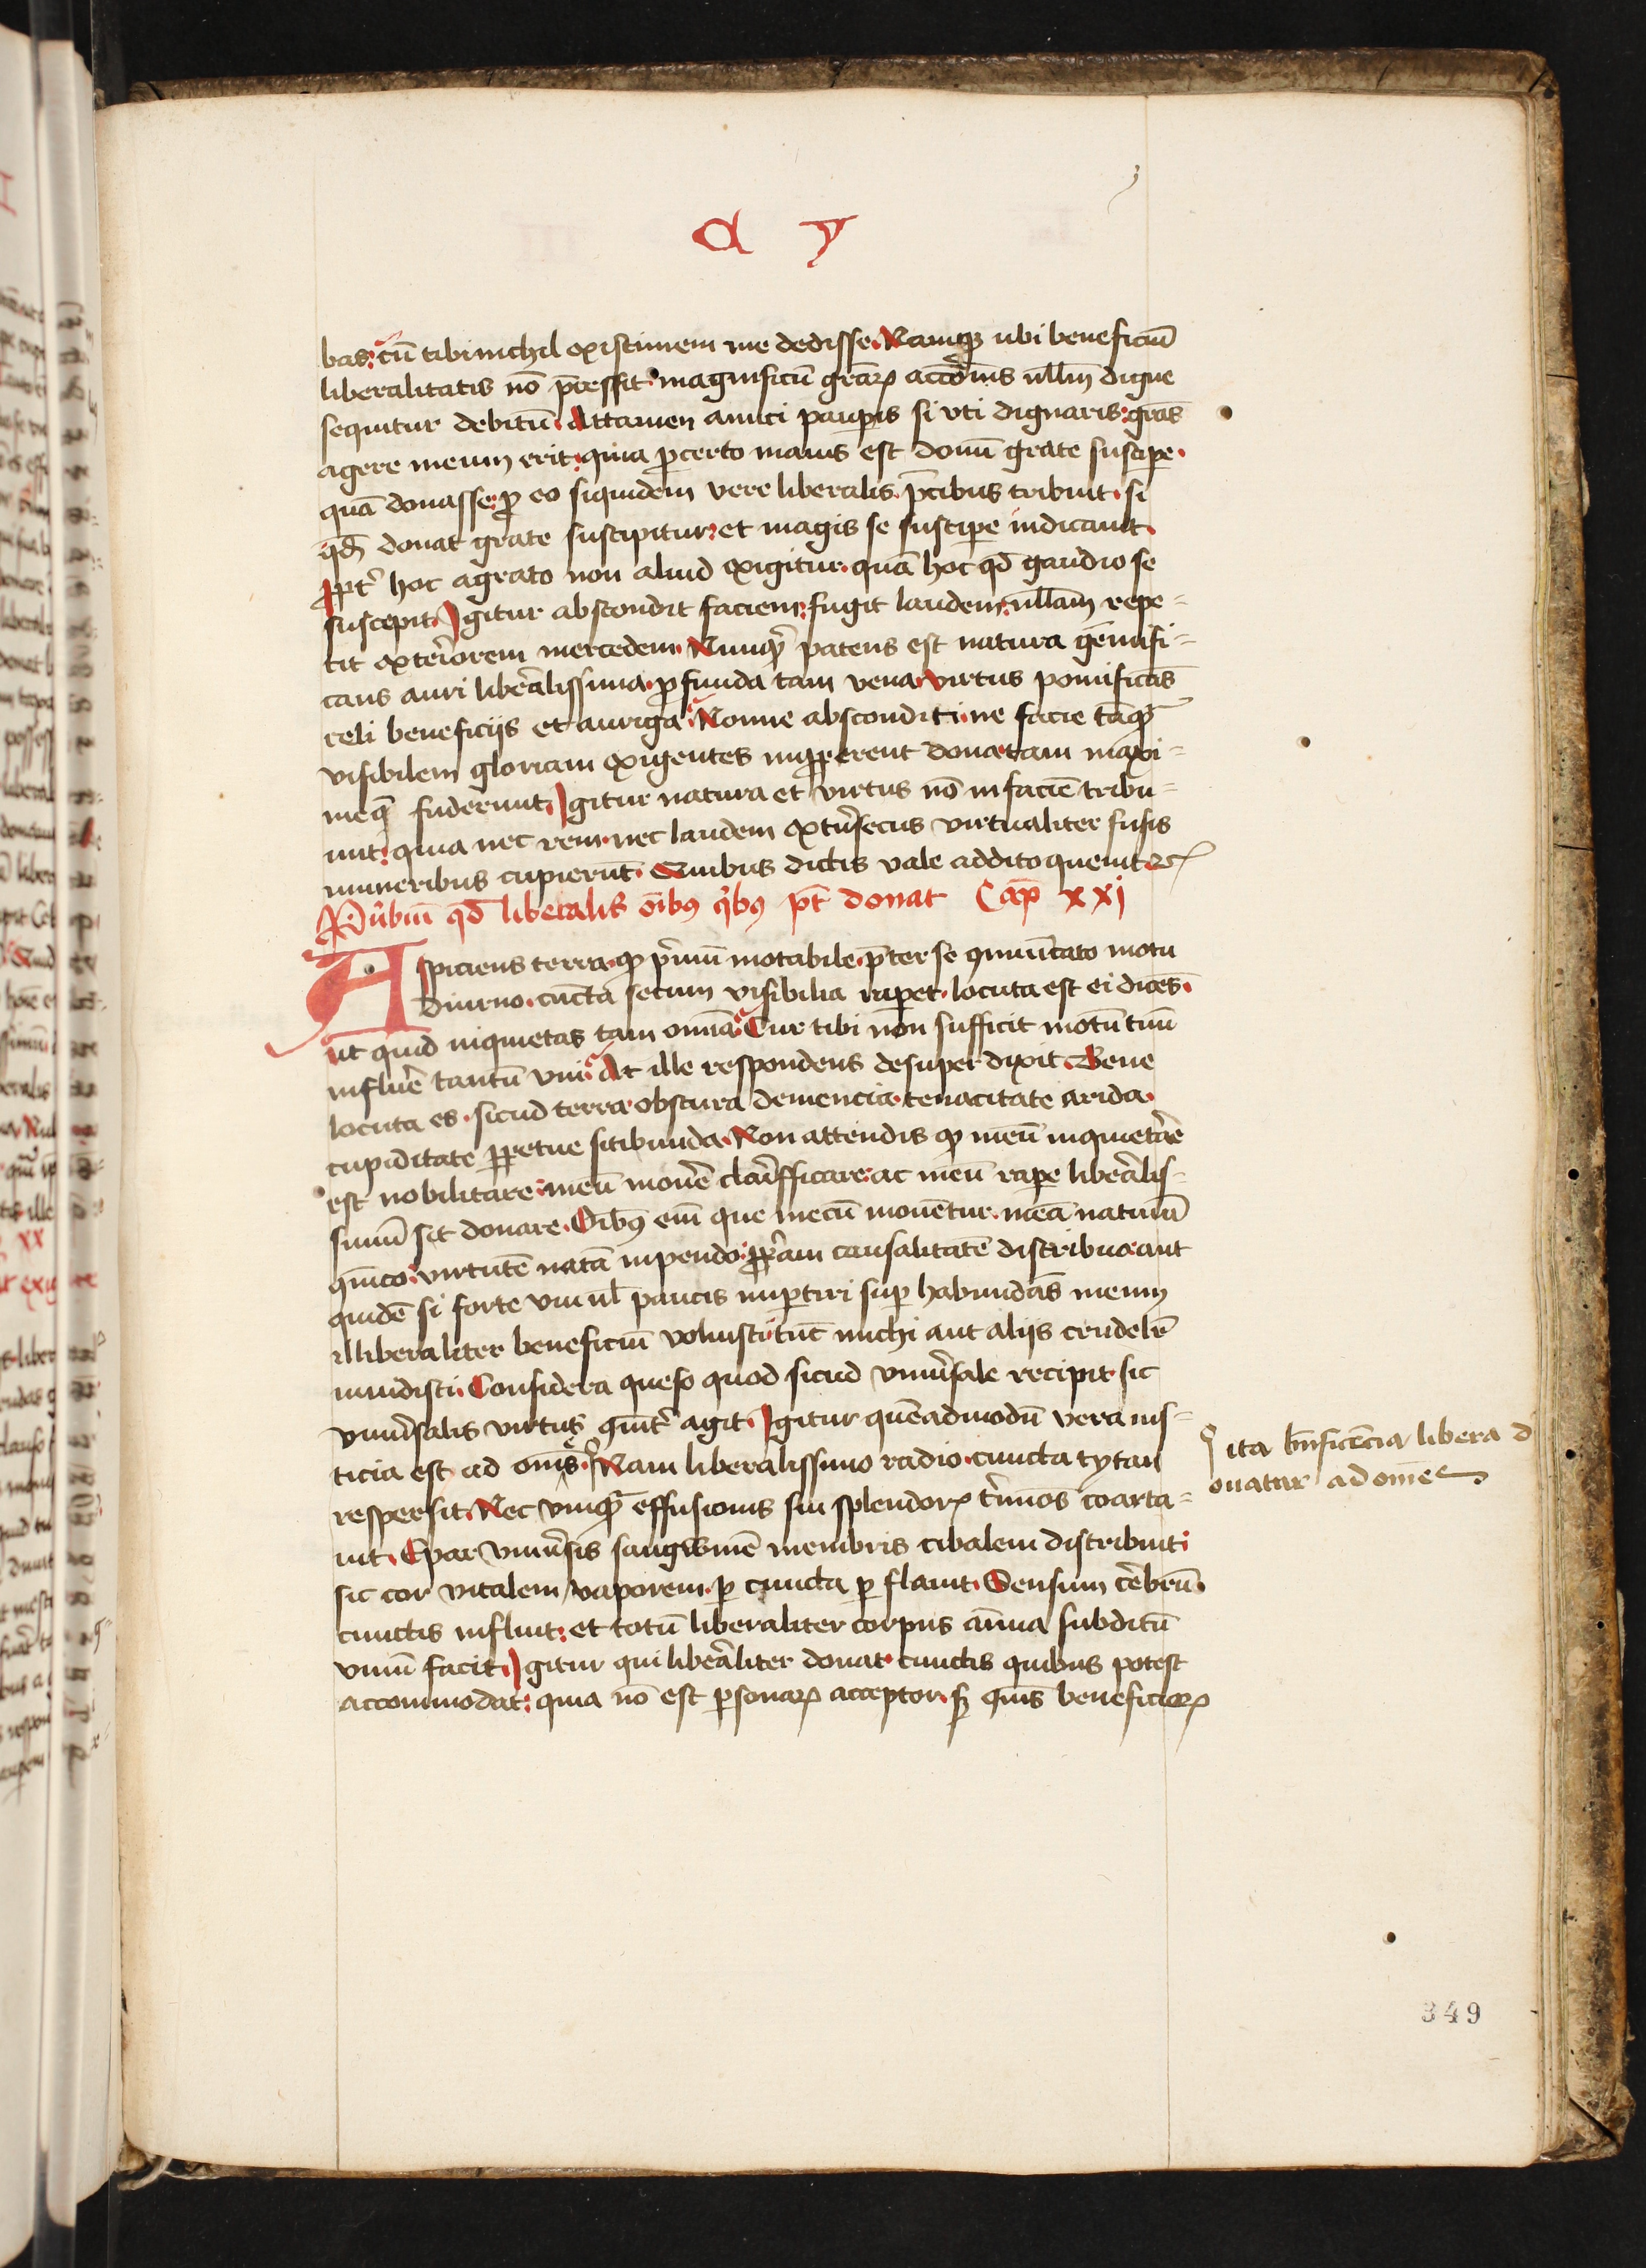 a y
bas: cū tibi nichil existimem me dedisse. Namqꝫ ubi beneficiū
liberalitatis nō p̄cessit. magnificū gr̄aꝝ acc̄ois nll̄m digne
sequitur debitū. Attamen amici paupis si vti dignaris: grās
agere meum erit: quia ꝑcerto maius est donū grate suscipe.
quā donasse: ꝓ eo siquidem vere liberalis. p̄cibus tribuit. si
qd̄ donat grate suscipitur: et magis se suscipe indicauit.
ꝓpt̾ hoc a grato non aliud exigitur. quā hoc qd̄ gaudio se
suscepit. Igitur abscondit faciem: fugit laudem: nll̄am repe-
tit exteriorem mercedem. Nunqͣ patens est natura gēmifi-
cans auri liberalissima. ꝓfunda tam vena. virtus pomificās
celi beneficijs et auriga. Nonne absconditi. ne facie tāqͣ
visibilem gloriam exigentes inꝓperent dona. tam maxi-
meqꝫ fuderunt. Igitur natura et virtus nō in faciē tribu-
unt: quia nec rem. nec laudem extrīsecus virtualiter fusis
muneribus cupierūt. Quibus dictis vale addito quieuit ꝛcͣ
Rubiū qd̄ liberalis oībꝰ qͥbꝰ pt̄ donat Cap̄ xxj
Aspiciens terra. qꝫ p̾mū motabile. p̄ter se ꝯmunicato motu
diurno. cūcta secum visibilia raperet. locuta est ei dicēs.
ut quid inquietas tam om̄ia. Cur tibi non sufficit motū tuū
influere tantū vni. At ille respondens desuper dixit. Bene
locuta es. sicud terra. obscura demencia. tenacitate arida.
cupiditate ꝑpetue sitibunda. Non attendis qꝫ meū inquietare
est nobilitare: meū mouere clarifficare: ac meū rape liberalis-
simū sit donare. Oībꝰ em̄ que mecū mouentur. meā naturā
ꝯm̄ico. virtutē natā inpendo: ꝓp̾am causalitatē distribuo: aut
quidē si forte vni ul̄ paucis inꝑtiri suꝑ habundās meum
illiberaliter beneficiū voluisti: tūc michi aut alijs crudelr̄
inuidisti. Considera queso quod sicud vniu̾sale recipit. sic
vniu̾salis virtus ꝯīt̾ agit. Igitur quēadmodū vera ius-
ticia est ad oms̄. Nam liberalissimo radio. cuncta tytan
respersit. Nec vnqͣ effusionis sui splendorꝫ t̾mīos coarta-
uit. Epar vniu̾sis sangwinē membris cibalem distribuit:
sic cor vitalem vaporem. ꝑ cuncta ꝑflauit. Sensum cerebrū.
cunctis influit: et totū liberaliter corpus aīma subditū
vniuū facit. Igitur qui liberaliter donat. cunctis quibus potest
accommodat: quia nō est ꝑsonaꝝ acceptor. sꝫ ꝯīs beneficioꝝ
ita bn̄ficēcia libera d
onatur ad omē
349